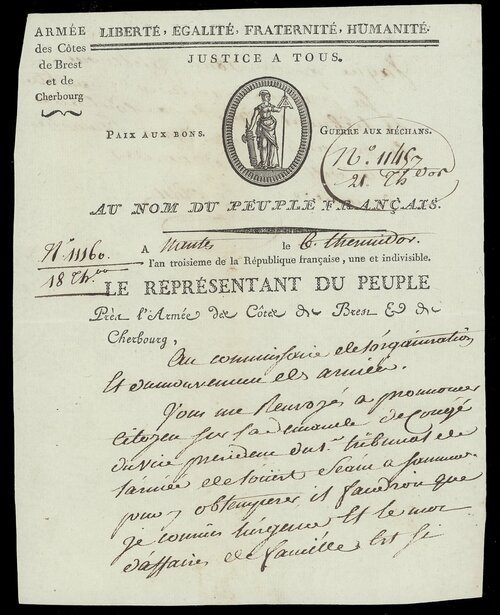 ARMÉE
des Côtes
de Brest
et de
Cherbourg
LIBERTÉ, EGALITÉ, FRATERNITÉ, HUMANITÉ.
JUSTICE A TOUS.
PAIX AUX BONS.
GUERRE AUX MÉCHANS.
N° 11457
21 Thdor
AU NOM DU PEUPLE FRANÇAIS.
N° 11160
18 Th.
A Nantes le 6 thermidor
l'an troisieme de la République française, une et indivisible.
LE REPRÉSENTANT DU PEUPLE
Près l'Armée des Côtes de Brest & de
Cherbourg,
Au commissaire de l'organisation
Et du mouvement des armées.
Vous me Renvoyés a prononcer
Citoyen sur la demande de Congé
du vice president du tribunal de
l'armée de
pour obtemperer il faudroit que
je connus l'urgence Et le mot
d'affaires de famille Est si